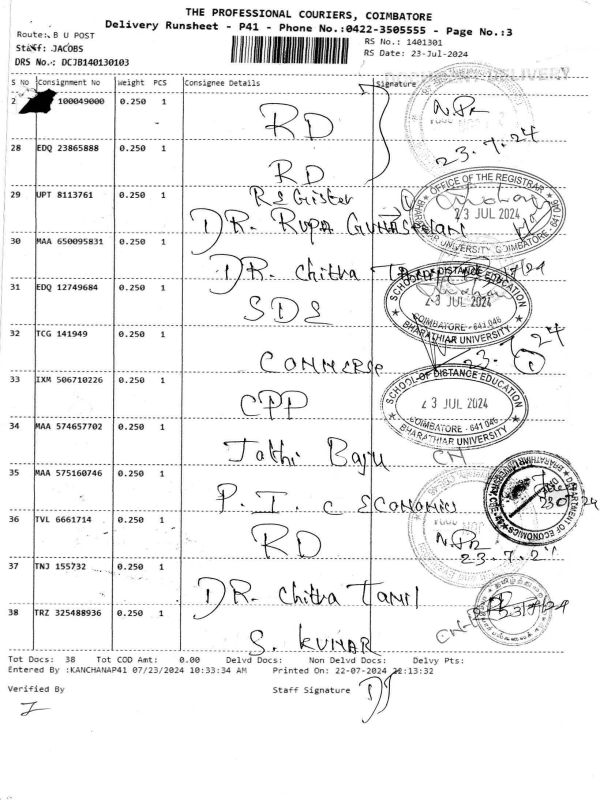 THE PROFESSIONAL COURIERS, COIMBATORE
Delivery Runsheet - P41 - Phone No.:0422-3505555 - Page No.:3
Route: B U POST
RS No.: 1401301
Staff: JACOBS
RS Date: 23-Jul-2024
DRS No.: DCJB140130103
S No Consignment No Weight PCS Consignee Details Signature
2 100049000 0.250 1 RD
23.7.24
28 EDQ 23865888 0.250 1 RD
OFFICE OF THE REGISTRAR
23 JUL 2024
BHARATHIAR UNIVERSITY COIMBATORE
29 UPT 8113761 0.250 1 REGister
DR. RUPA GUNASEELAN
30 MAA 650095831 0.250 1 DR. chitra
31 EDQ 12749684 0.250 1 SDE
SCHOOL OF DISTANCE EDUCATION
23 JUL 2024
COIMBATORE - 641 046
BHARATHIAR UNIVERSITY
32 TCG 141949 0.250 1 COMMERSE
33 IXM 506710226 0.250 1 CPP
SCHOOL OF DISTANCE EDUCATION
23 JUL 2024
COIMBATORE - 641 046
BHARATHIAR UNIVERSITY
34 MAA 574657702 0.250 1 Jothi Baju
35 MAA 575160746 0.250 1 P. I. C ECONOMICS
DEPARTMENT OF ECONOMICS
36 TVL 6661714 0.250 1 RD
23.7.24
37 TNJ 155732 0.250 1 DR. chitra TAMIL
38 TRZ 325488936 0.250 1 S. KUMAR
Tot Docs: 38 Tot COD Amt: 0.00 Delvd Docs: Non Delvd Docs: Delvy Pts:
Entered By :KANCHANAP41 07/23/2024 10:33:34 AM Printed On: 22-07-2024 22:13:32
Verified By Staff Signature